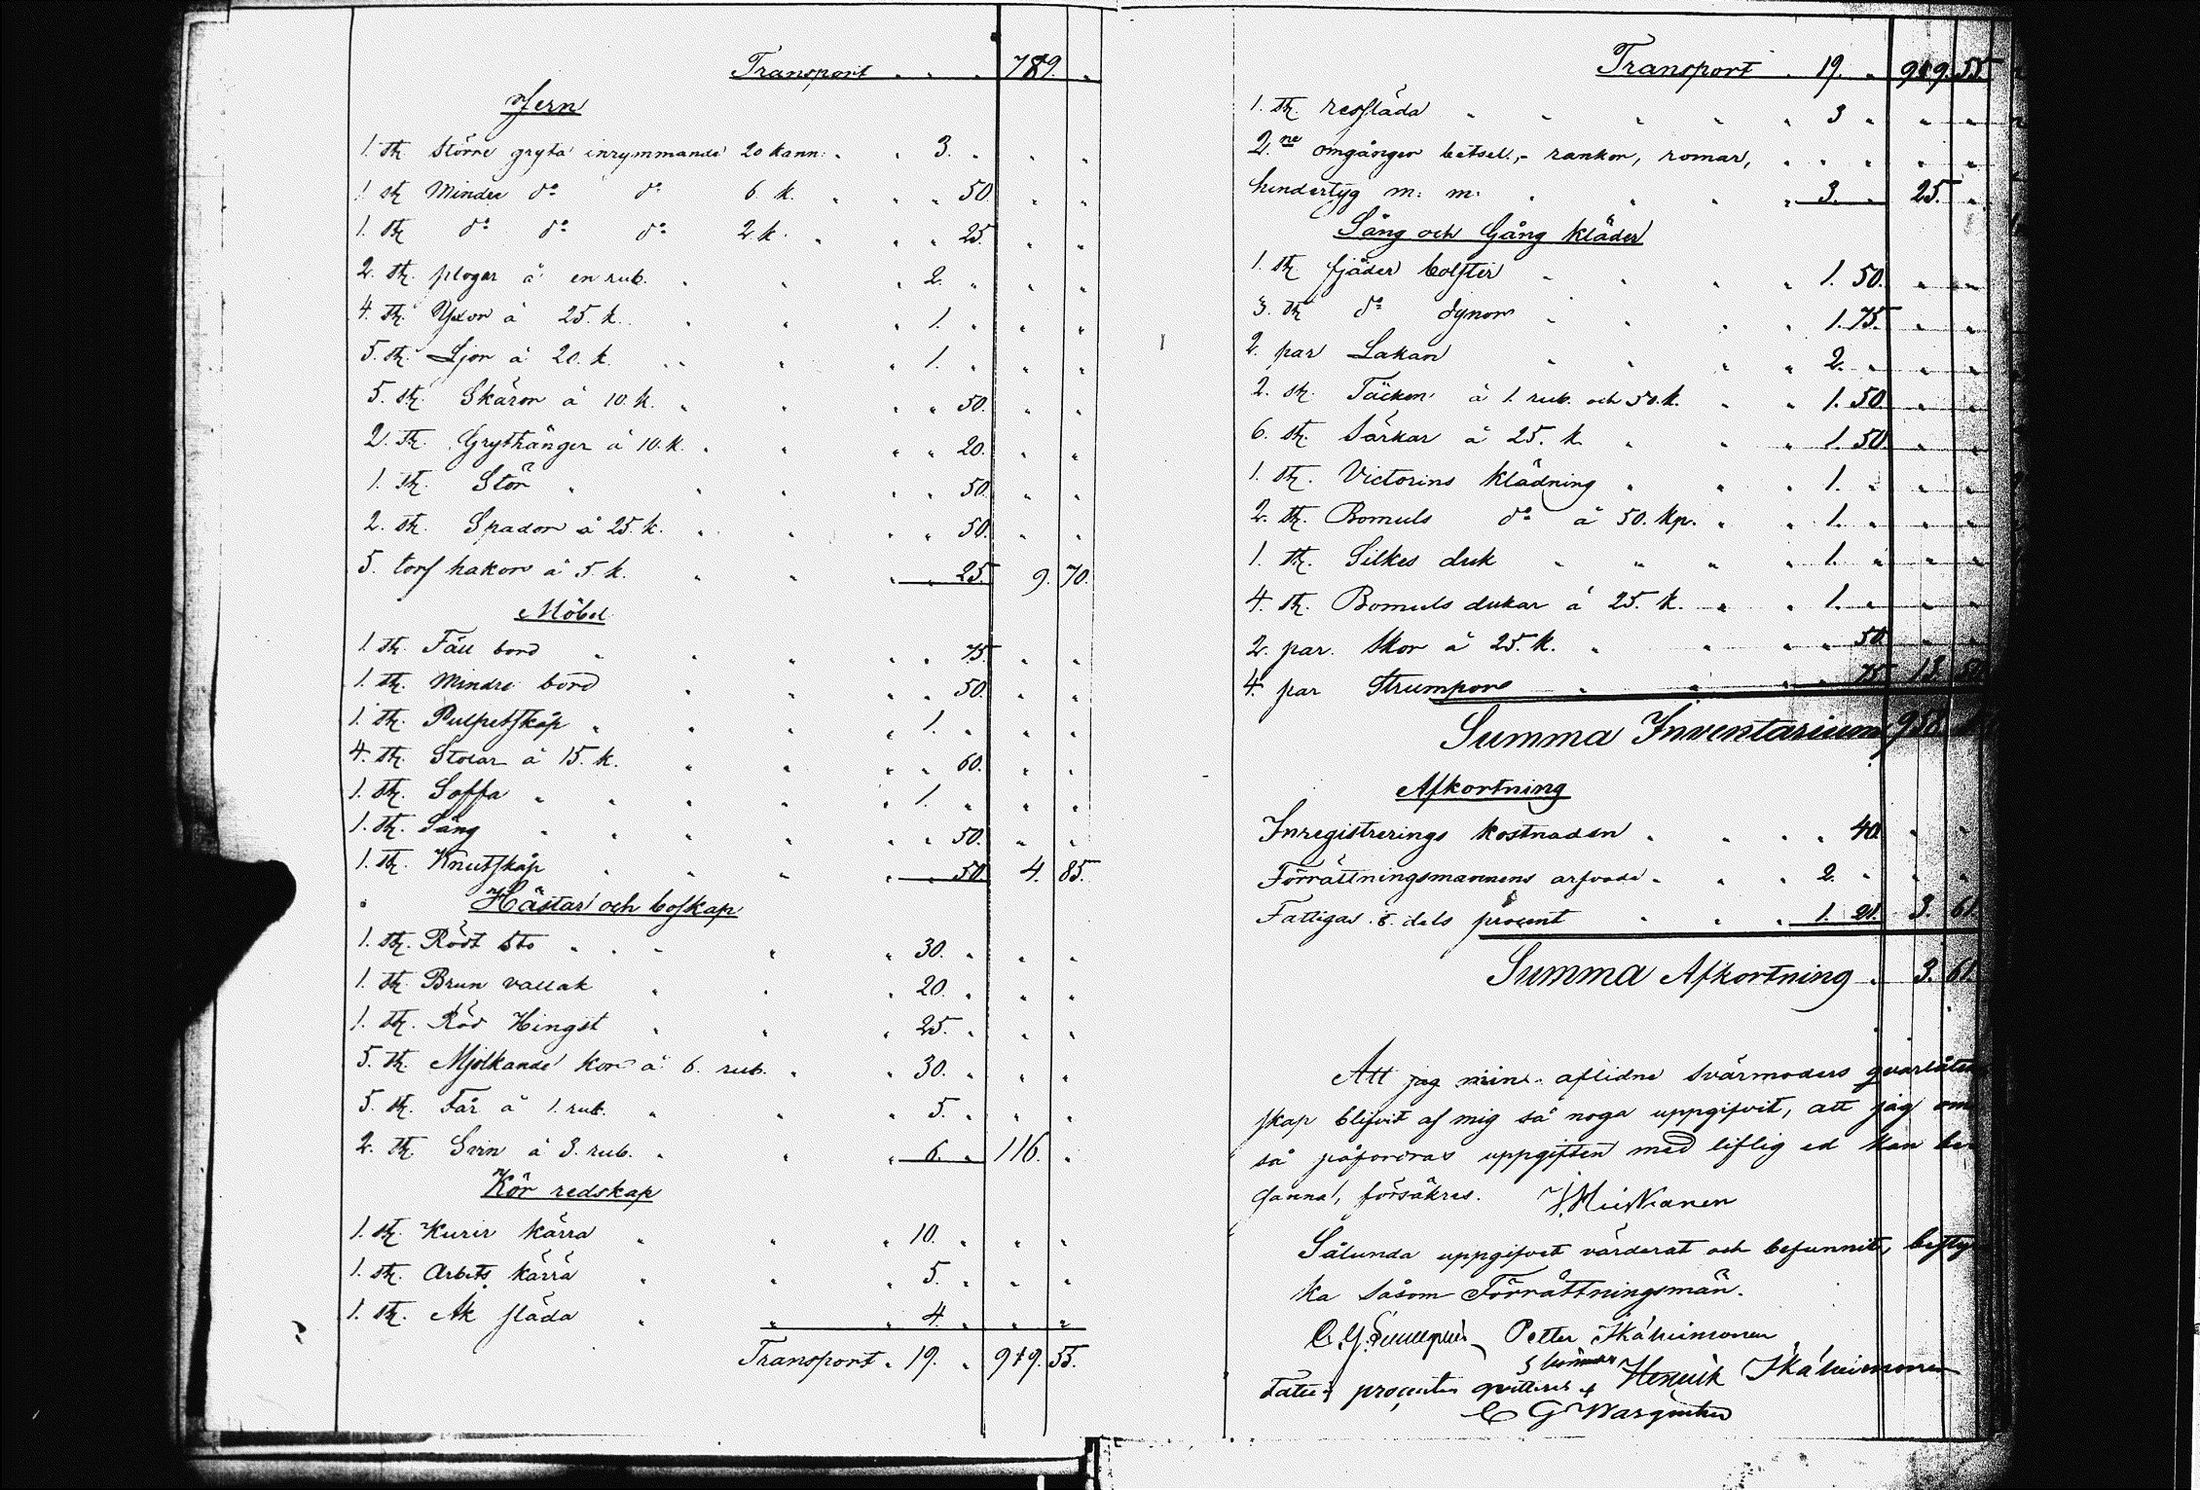 Transport 789.
Jern
1. st. större gryta inrymmande 20 kann: 3.
1 st Mindre do do 6. k. 50
1. st do do do 2 k. 25.
2. st. plogar à en rub. 2.
4. st. Yxor à 25. k. 1.
5. st. Ljor à 20. k. 1.
5. st. Skäror à 10. k. 50.
2. st. Grythänger à 10. k. 20.
1. st. Stör 50.
2. st. Spador à 25. k. 50.
5. torf hakor à 5. k. 25. 9. 70.
Möbel
1. st. Fäll bord 75.
1. st. Mindre bord 50.
1. st. Pulpetskåp 1.
4. st. Stolar à 15. k. 60.
1. st. Soffa 1.
1. st. Säng 50.
1. st. Knutskåp 50. 4. 85.
Hästar och boskap
1. st. Rödt sto 30.
1. st. Brun vallak 20.
1. st. Röd Hingst 25.
5. st. Mjölkande kor à 6. rub. 30.
5. st. Får à 1. rub. 5.
2. st. Svin à 3. rub. 6. 116.
Kör redskap
1. st. Kurir kärra 10.
1. st. Arbets kärra 5.
1. st. Åk släda 4.
Transport 19. 919. 55.
Transport 19. 919. 55
1. st. ressläda 3
2.ne omgånger betsel, rankor, romar,
hindertyg m. m. 3. 25.
Säng och Gång kläder
1. st fjäder bolster 1. 50.
3. st do dynor 1. 75.
2. par Lakan 2.
2. st. Täcken à 1. rub. och 50. k. 1. 50.
6. st. Särkar à 25. k. 1. 50
1. st. Victorins klädning 1.
2. st. Bomuls do à 50. kp. 1.
1. st. Silkes duk 1.
4. st. Bomuls dukar à 25. k. 1.
2. par. Skor à 25. k. 50.
4. par Strumpor 75. 13. 50.
Summa Inventarium 958.
Afkortning
Inregistrerings kostnaden 40.
Förrättningsmannens arfvode 2.
Fattigas 8. dels procent 1. 21. 3. 61.
Summa Afkortning 3. 61.
Att jag min aflidne svärmoders qvarlåten
skap blifvit af mig så noga uppgifvit, att jag om
så påfordras uppgiften med liflig ed kan be
sanna, försäkras.
Sålunda uppgifvet värderat och befunnit, besty
ka såsom Förrättningsmän.
C. G. Petter Ikäheimonen
procenten qvitteras Henrik Ikäheimonen
C G